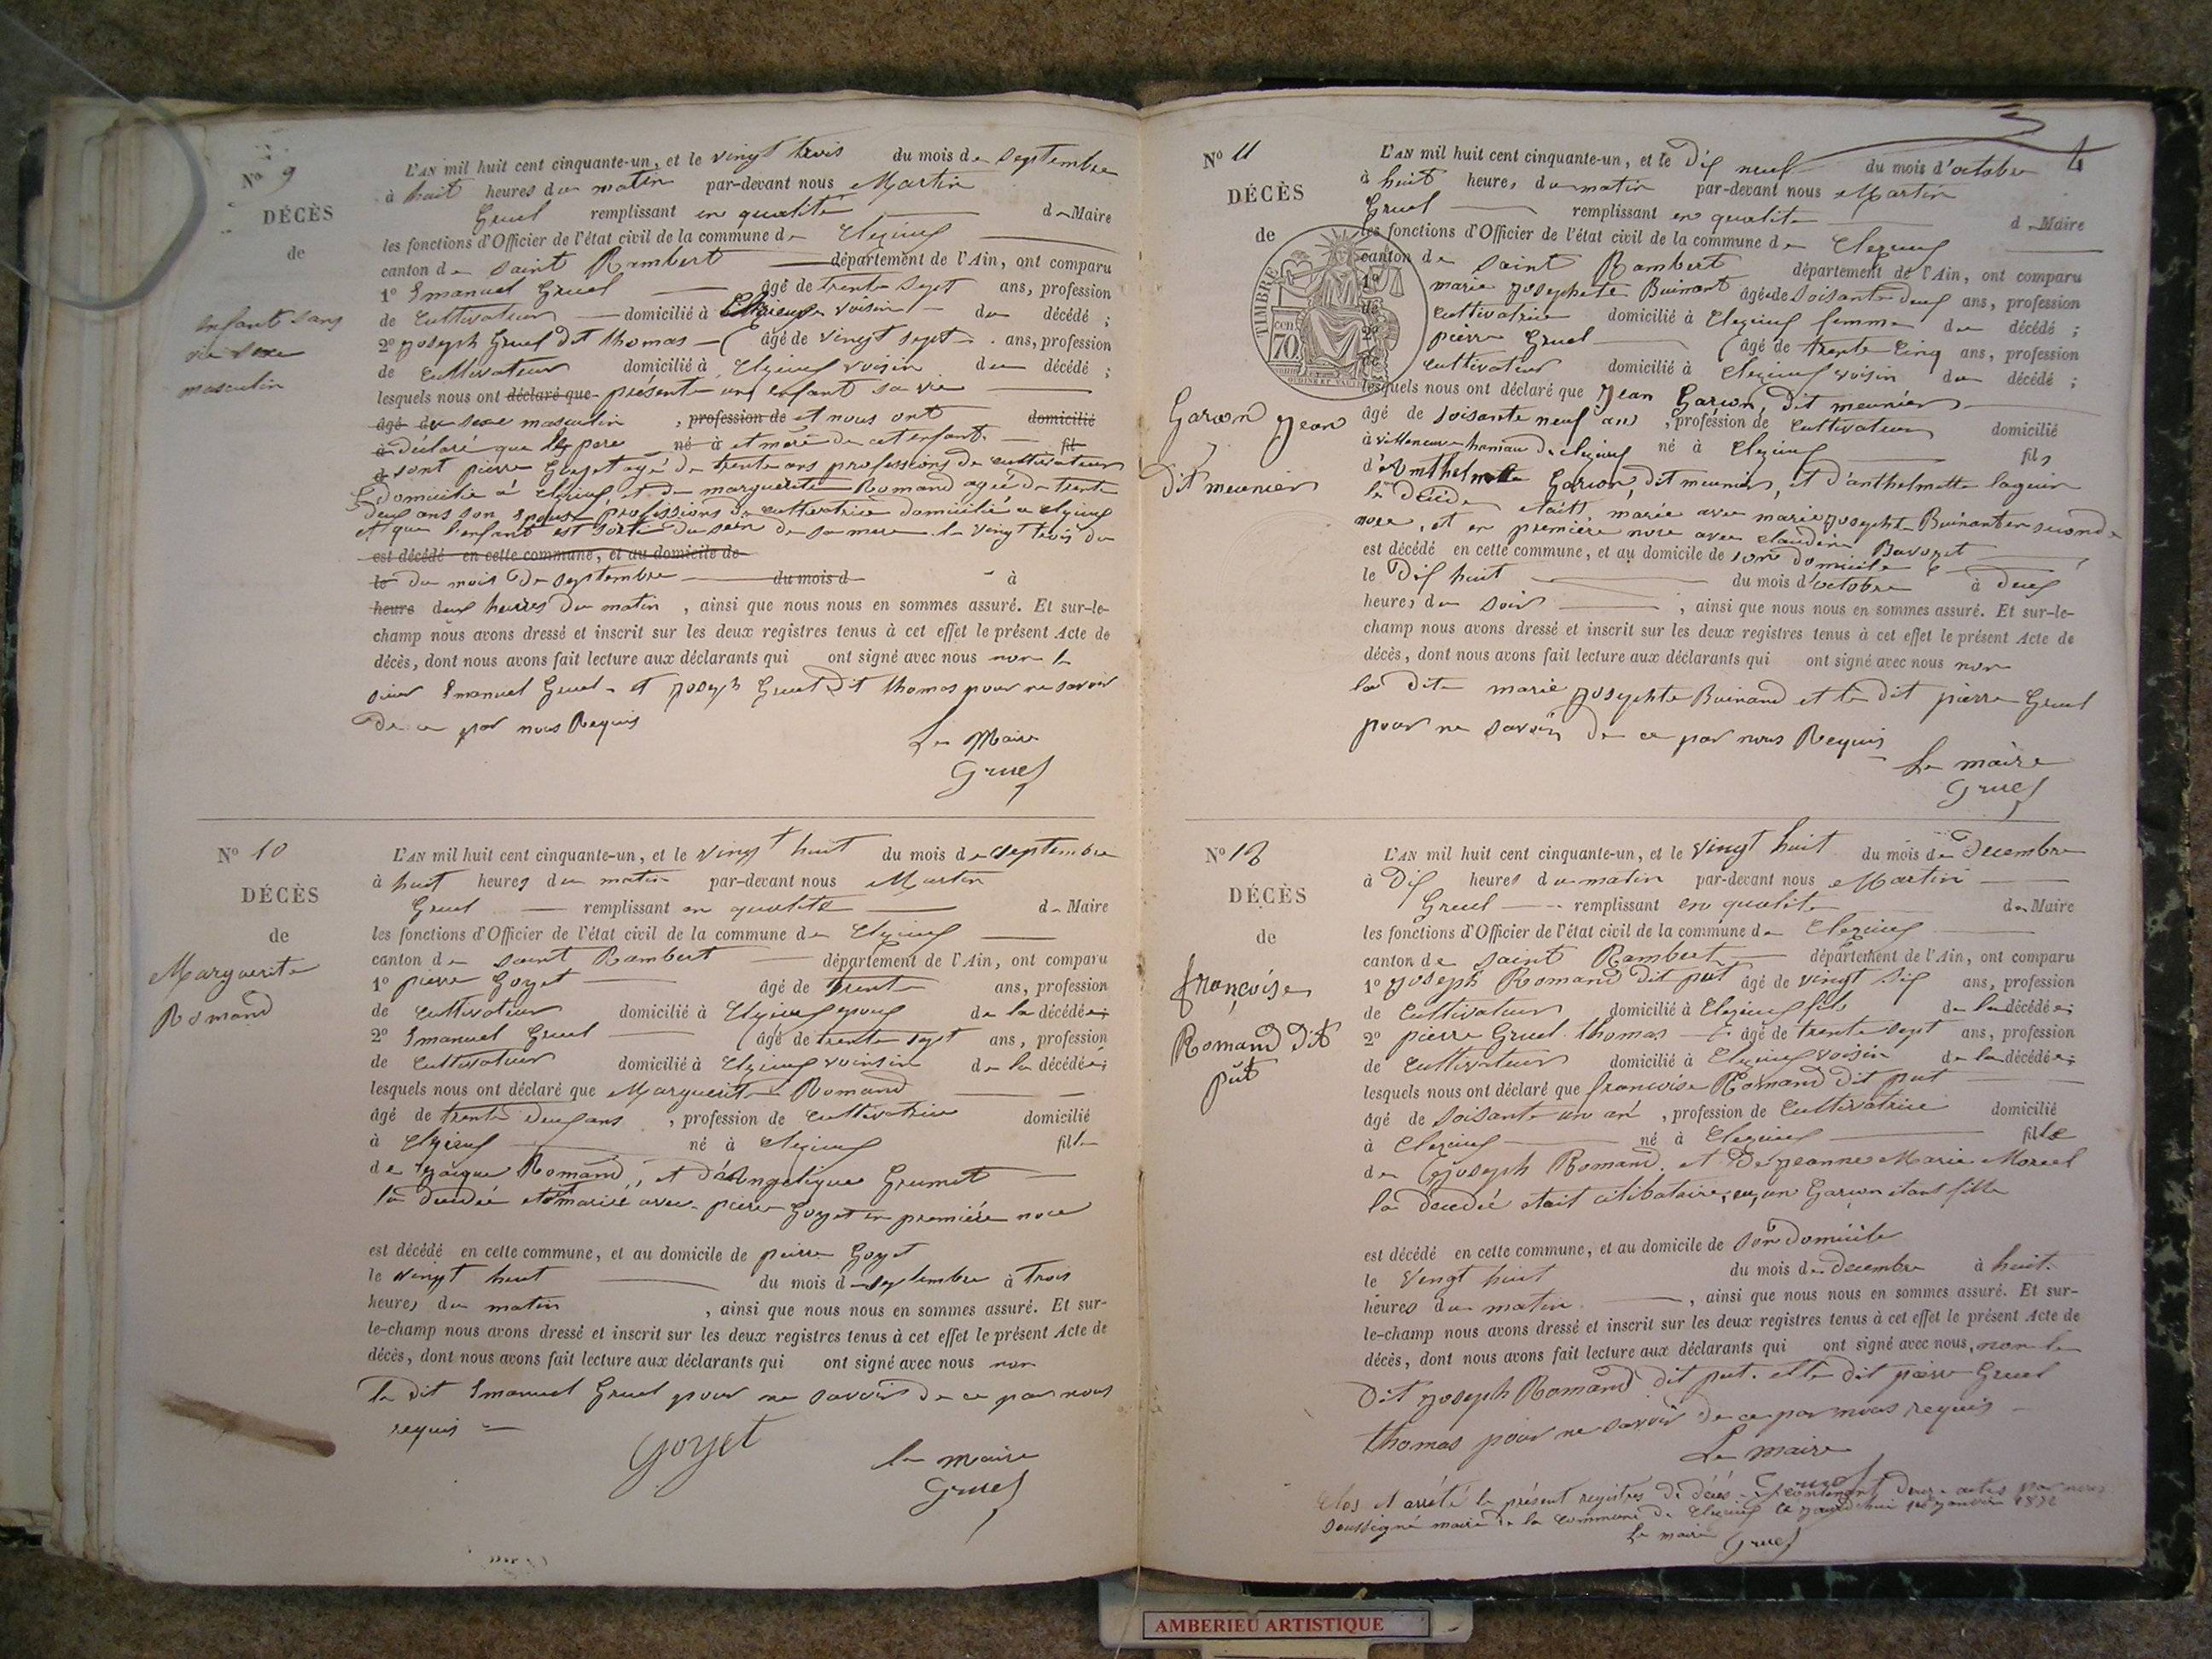 No 9
DÉCÈS
de
enfant sans
vie sexe
masculin
L'AN mil huit cent cinquante-un, et le vingt trois du mois de septembre
à huit heures du matin par-devant nous Martin
Gruel remplissant en qualité de Maire
les fonctions d'Officier de l'état civil de la commune de Cleyzieux
canton de saint Rambert département de l'Ain, ont comparu
1o Emanuel Gruel âgé de trente sept ans, profession
de Cultivateur domicilié à voisin du décédé ;
2o joseph Gruel dit thomas âgé de vingt sept ans, profession
de Cultivateur domicilié à Cleyzieux voisin du décédé ;
lesquels nous ont déclaré que présenté un enfant sa vie
âgé du sexe masculin , profession de et nous ont domicilié
à déclaré que le pere né à et mère de cet enfant fil
sont pierre Goyet agé de trente ans professions de cultivateur
domicilie à Cleyzieux et de marguerite Romand agée de trente
deux ans son epouse professions de cultivatrice domiciliée a Cleyzieux
et que l'enfant est sorti du sein de sa mere le vingt trois du
est décédé en cette commune, et au domicile de
le du mois de septembre du mois d à
heure deux heures du matin , ainsi que nous nous en sommes assuré. Et sur-le-
champ nous avons dressé et inscrit sur les deux registres tenus à cet effet le présent Acte de
décès, dont nous avons fait lecture aux déclarants qui ont signé avec nous non le
sieur Emanuel Gruel et joseph Gruel dit thomas pour ne savoir
de ce par nous Requis
Le Maire
Gruel
No 10
DÉCÈS
de
Marguerite
Romand
L'AN mil huit cent cinquante-un, et le vingt huit du mois de septembre
à huit heures du matin par-devant nous Martin
Gruel remplissant en qualité de Maire
les fonctions d'Officier de l'état civil de la commune de Cleyzieux
canton de saint Rambert département de l'Ain, ont comparu
1o pierre Goyet âgé de trente ans, profession
de Cultivateur domicilié à Cleyzieux epoux de la décédée ;
2o Emanuel Gruel âgé de trente sept ans, profession
de Cultivateur domicilié à Cleyzieux voinsin de la décédée ;
lesquels nous ont déclaré que Marguerite Romand
âgé de trente deux ans , profession de Cultivatrice domicilié
à Cleyzieux né à Cleyzieux fille
de Jacque Romand, et d'Angelique Grumet
la decedée etait mariée avec pierre Goyet en première noce
est décédé en cette commune, et au domicile de pierre Goyet
le vingt huit du mois de septembre à trois
heures du matin , ainsi que nous nous en sommes assuré. Et sur-
le-champ nous avons dressé et inscrit sur les deux registres tenus à cet effet le présent Acte de
décès, dont nous avons fait lecture aux déclarants qui ont signé avec nous non
le dit Emanuel Gruel pour ne savoir de ce par nous
requis
Goyet
le maire
Gruel
4
No 11
DÉCÈS
de
TIMBRE
70
Garson Jean
dit meunier
L'AN mil huit cent cinquante-un, et le dix neuf du mois d'octobre
à huit heures du matin par-devant nous Martin
Gruel remplissant en qualite de Maire
les fonctions d'Officier de l'état civil de la commune de Cleyzieux
canton de saint Rambert département de l'Ain, ont comparu
1o marie josephete Buinant âgée de soisante deux ans, profession
de cultivatrice domicilié à Cleyzieux femme du décédé ;
2o pierre Gruel âgé de trente Cinq ans, profession
de Cultivateur domicilié à Cleyzieux voisin du décédé ;
lesquels nous ont déclaré que Jean Garson, dit meunier
âgé de soisante neuf ans , profession de Cultivateur domicilié
à villeneuve hamau de Cleyzieux né à Cleyzieux fils
d'Anthelme Garson, dit meunier, et d'anthelmette
le décédé etait marié avec marie josephte Buinant en seconde
noce, et en première noce avec claudine Bavozet
est décédé en cette commune, et au domicile de son domicile
le dix huit du mois d'octobre à deux
heures du soir , ainsi que nous nous en sommes assuré. Et sur-le-
champ nous avons dressé et inscrit sur les deux registres tenus à cet effet le présent Acte de
décès, dont nous avons fait lecture aux déclarants qui ont signé avec nous non
la dite marie josephte Buinand et le dit pierre Gruel
pour ne savoir de ce par nous Requis
Le maire
Gruel
No 12
DÉCÈS
de
françoise
Romand dit
put
L'AN mil huit cent cinquante-un, et le vingt huit du mois de decembre
à dix heures du matin par-devant nous Martin
Gruel remplissant en qualite de Maire
les fonctions d'Officier de l'état civil de la commune de Cleyzieux
canton de saint Rambert département de l'Ain, ont comparu
1o joseph Romand dit put âgé de vingt six ans, profession
de Cultivateur domicilié à Cleyzieux fils de la décédée ;
2o pierre Gruel thomas âgé de trente sept ans, profession
de Cultivateur domicilié à Cleyzieux voisin de la décédée ;
lesquels nous ont déclaré que françoise Romand dit put
âgé de soisante un an , profession de Cultivatrice domicilié
à Cleyzieux né à Cleyzieux fille
de joseph Romand et de jeanne Marie Morel
la decedée etait célibataire, eu, un Garson etant fille
est décédé en cette commune, et au domicile de son domicile
le Vingt huit du mois de decembre à huit
heures du matin , ainsi que nous nous en sommes assuré. Et sur-
le-champ nous avons dressé et inscrit sur les deux registres tenus à cet effet le présent Acte de
décès, dont nous avons fait lecture aux déclarants qui ont signé avec nous, non le
dit joseph Romand dit put. et le dit pierre Gruel
thomas pour ne savoir de ce par nous requis
Le maire
Gruel
Clos et arrêté le présent registres de décès contenant douze actes par nous
soussigné maire de la commune de Cleyzieux ce jourd'hui 1er janvier 1852
Le maire Gruel
AMBERIEU ARTISTIQUE